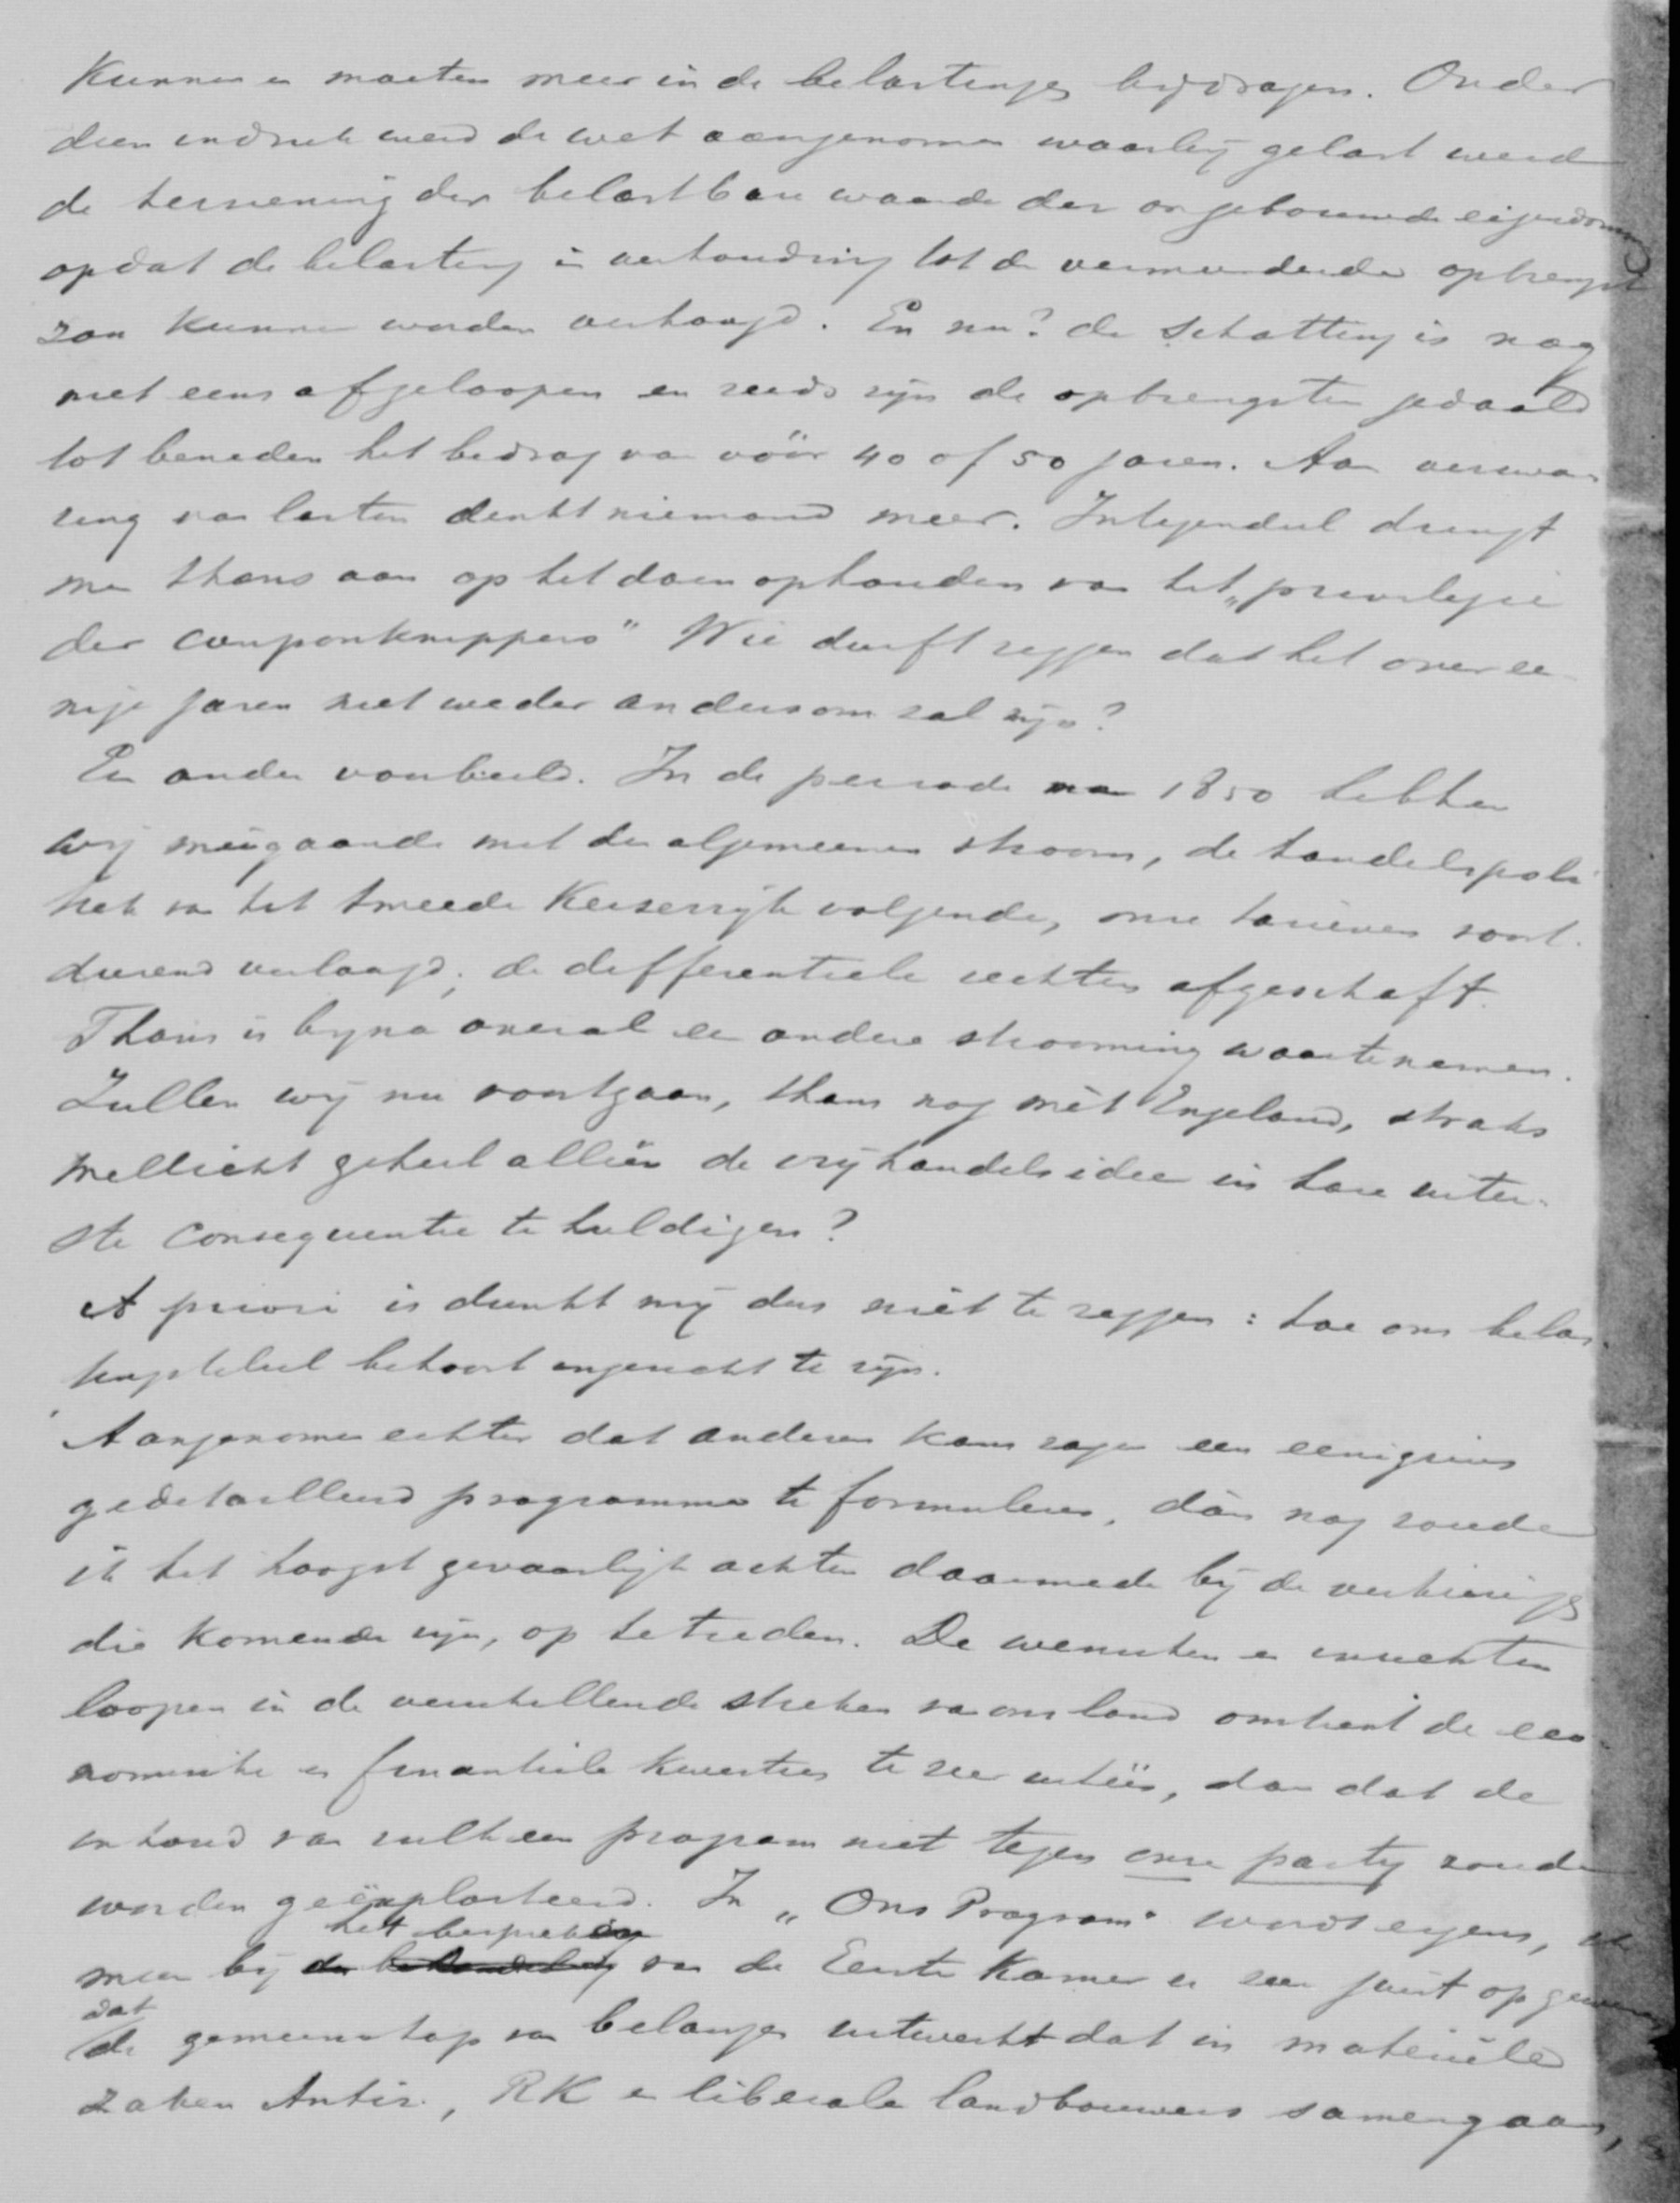 Kunnen en moeten meer in de belastingen bijdragen. Onder
dien indruk werd de wet aangenomen waarbij gelast werd
de herziening der belastbare waarde der ongebouwde eigendommen
opdat de belasting in verhouding tot de vermeerderde opbrengst
zou kunnen worden verhoogd. En nu? de schatting is nog
niet eens afgeloopen en reeds zijn de opbrengsten gedaald
tot beneden het bedrag van vóór 40 of 50 jaren. Aan verzwa
ring van lasten denkt niemand meer. Integendeel dringt
men thans aan op het doen ophouden van het „privilegie
der couponknippers" Wie durft zeggen dat het over ee
nige jaren niet weder andersom zal zijn?
Een ander voorbeeld. In de periode na 1850 hebben
wij meêgaande met den algemeenen stroom, de handelspoli
tiek van het tweede Keizerrijk volgende, onze tarieven voort-
durend verlaagd; de differentieele rechten afgeschaft.
Thans is bijna overal een andere strooming waartenemen.
Zullen wij nu voortgaan, thans nog mèt Engeland, straks
wellicht geheel alléén de vrijhandelsidee in hare uiter-
ste consequentie te huldigen?
A priori is dunkt mij dus niet te zeggen: hoe ons belas-
tingstelsel behoort ingericht te zijn.
Aangenomen echter dat anderen kans zagen een eenigzins
gedetailleerd programma te formuleren, dán nog zoude
ik het hoogst gevaarlijk achten daarmede bij de verkiezingen
die komende zijn, op te treden. De wenschen en inzichten
loopen in de verschillende streken van ons land omtrent de eco-
nomische en finantiele kwesties te zeer uitéén, dan dat de
inhoud van zulk een program niet tegen onze partij zoude
worden geëxploiteerd. In „Ons Program" wordt ergens, ik
het bespreken
meen bij de behandeling van de Eerste Kamer er zeer juist op gewezen
dat
de gemeenschap van belangen uitwerkt dat in materiële
zaken Antir., RK en liberale landbouwers samengaan,